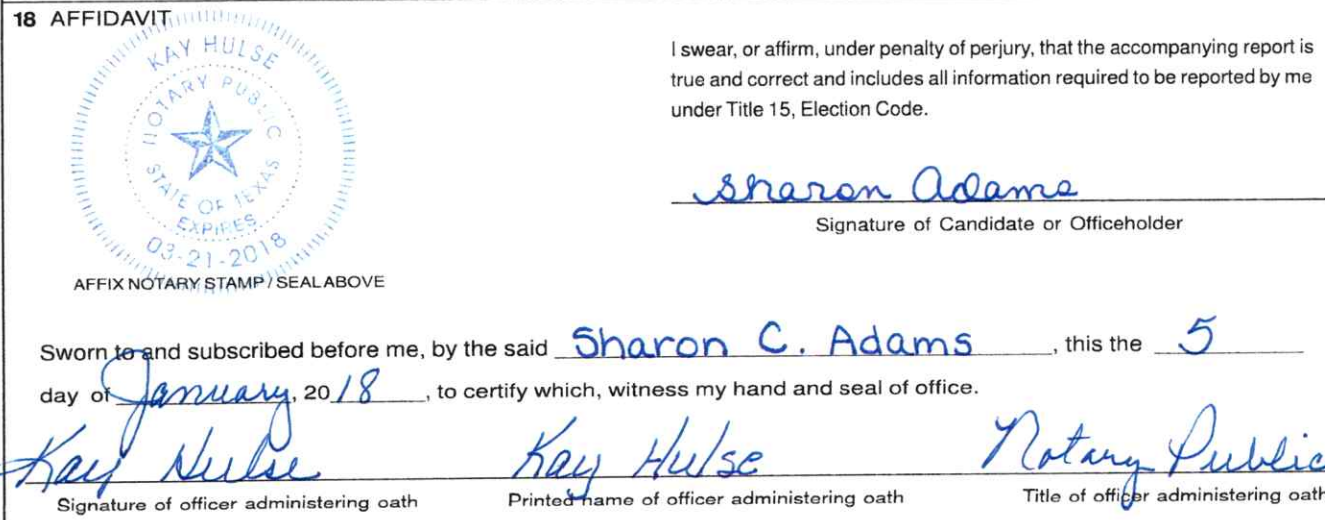 18 AFFIDAVIT
KAY HULSE
NOTARY PUBLIC
STATE OF TEXAS
EXPIRES
03-21-2018
I swear, or affirm, under penalty of perjury, that the accompanying report is
true and correct and includes all information required to be reported by me
under Title 15, Election Code.
Sharon Adams
Signature of Candidate or Officeholder
AFFIX NOTARY STAMP / SEAL ABOVE
Sworn to and subscribed before me, by the said Sharon C. Adams, this the 5
day of January, 20 18, to certify which, witness my hand and seal of office.
Kay Hulse Kay Hulse Notary Public
Signature of officer administering oath Printed name of officer administering oath Title of officer administering oath